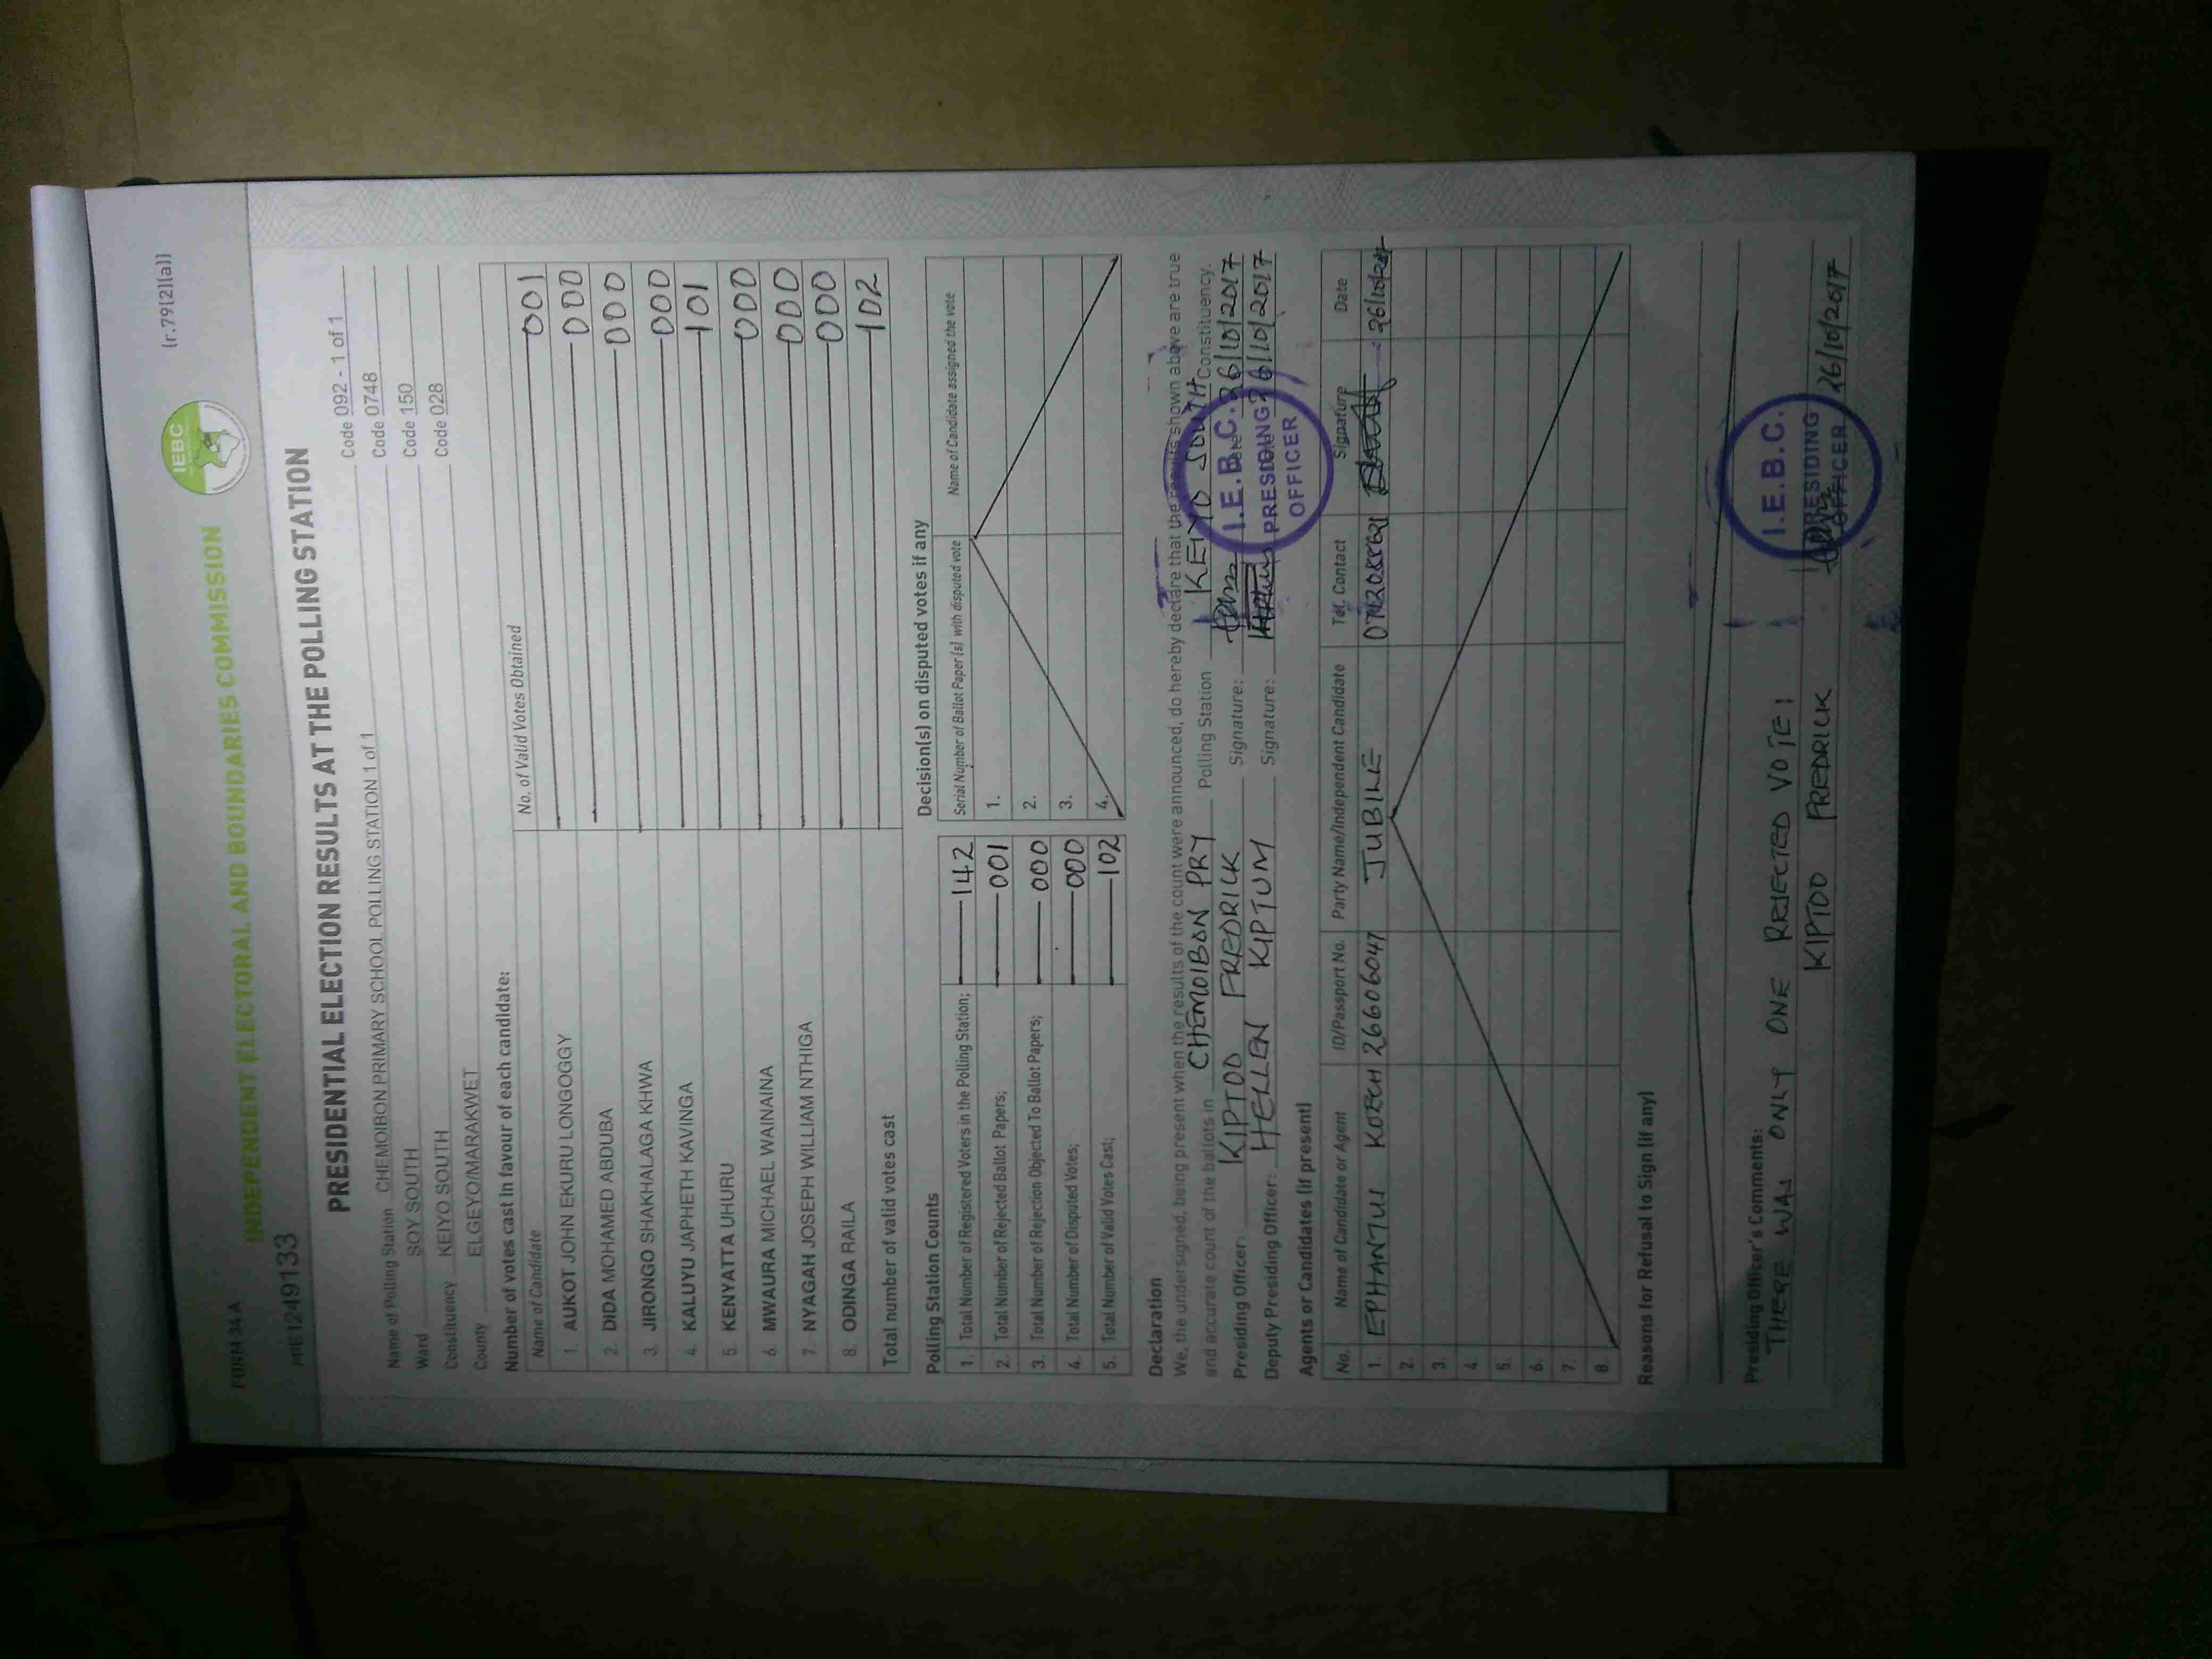 FORM 34A
(r.79(2)(a))
IEBC
INDEPENDENT ELECTORAL AND BOUNDARIES COMMISSION
PRESIDENTIAL ELECTION RESULTS AT THE POLLING STATION
Name of Polling Station CHEMOIBON PRIMARY SCHOOL POLLING STATION 1 of 1 Code 092 - 1 of 1
Ward SOY SOUTH Code 0748
Constituency KEIYO SOUTH Code 150
County ELGEYO/MARAKWET Code 028
Number of votes cast in favour of each candidate:
Name of Candidate No. of Valid Votes Obtained
1. AUKOT JOHN EKURU LONGOGGY 001
2. DIDA MOHAMED ABDUBA 000
3. JIRONGO SHAKHALAGA KHWA 000
4. KALUYU JAPHETH KAVINGA 000
5. KENYATTA UHURU 101
6. MWAURA MICHAEL WAINAINA 000
7. NYAGAH JOSEPH WILLIAM NTHIGA 000
8. ODINGA RAILA 000
Total number of valid votes cast 102
Polling Station Counts
1. Total Number of Registered Voters in the Polling Station; 142
2. Total Number of Rejected Ballot Papers; 001
3. Total Number of Rejection Objected To Ballot Papers; 000
4. Total Number of Disputed Votes; 000
5. Total Number of Valid Votes Cast; 102
Decision(s) on disputed votes if any
Serial Number of Ballot Paper(s) with disputed vote Name of Candidate assigned the vote
1.
2.
3.
4.
Declaration
We, the undersigned, being present when the results of the count were announced, do hereby declare that the results shown above are true
and accurate count of the ballots in CHEMOIBON PRY Polling Station KEIYO SOUTH Constituency.
Presiding Officer: KIPTOO FREDRICK Signature: Date 26/10/2017
Deputy Presiding Officer: HELLEN KIPTUM Signature: 26/10/2017
I.E.B.C.
PRESIDING
OFFICER
Agents or Candidates (if present)
No. Name of Candidate or Agent ID/Passport No. Party Name/Independent Candidate Tel. Contact Signature Date
1. EPHANTUS KOECH 26606047 JUBILE
2.
3.
4.
5.
6.
7.
8.
Reasons for Refusal to Sign (if any)
Presiding Officer's Comments:
THERE WAS ONLY ONE REJECTED VOTE!
KIPTOO FREDRICK 26/10/2017
I.E.B.C.
PRESIDING
OFFICER